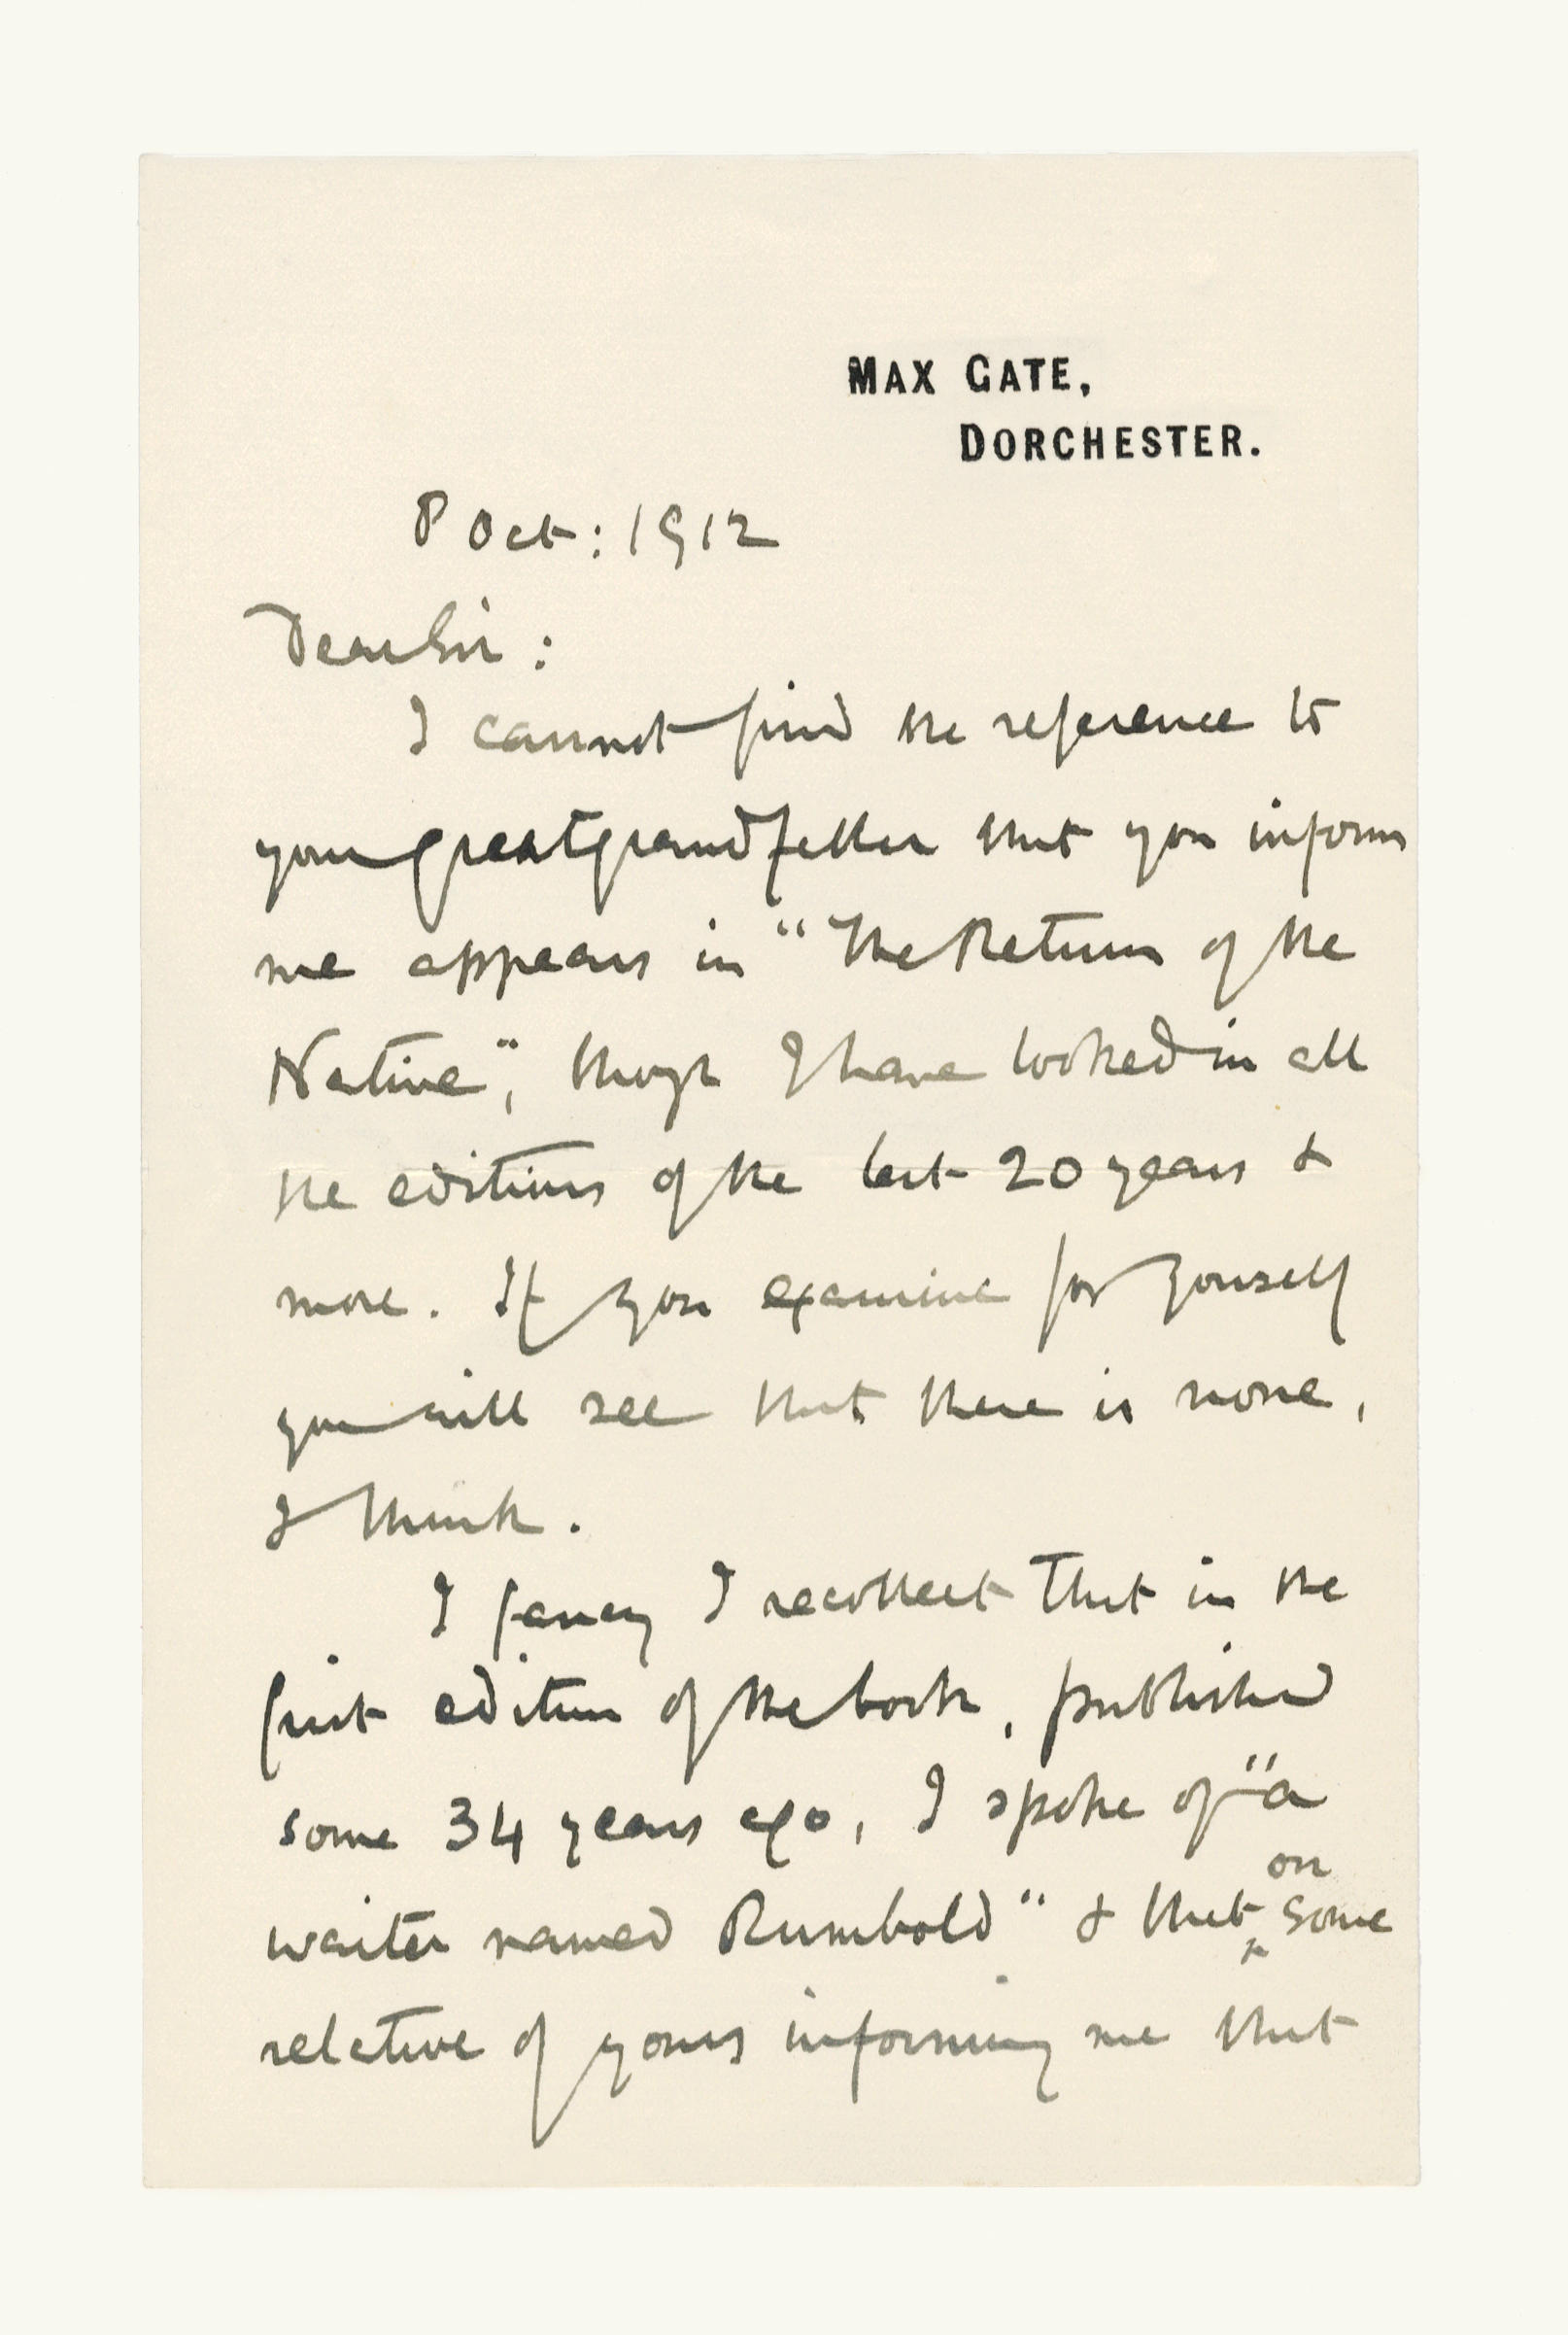 MAX GATE,
DORCHESTER.
8 Oct: 1912
Dear Sir:
I cannot find the reference to
your greatgrandfather that you inform
me appears in "The Return of the
Native", though I have looked in all
the editions of the last 20 years &
more. If you examine for yourself
you will see that there is none,
I think.
I fancy I recollect that in the
first edition of the book, published
some 34 years ago, I spoke of "a
waiter named Rumbold" & that ^on some
relative of yours informing me that